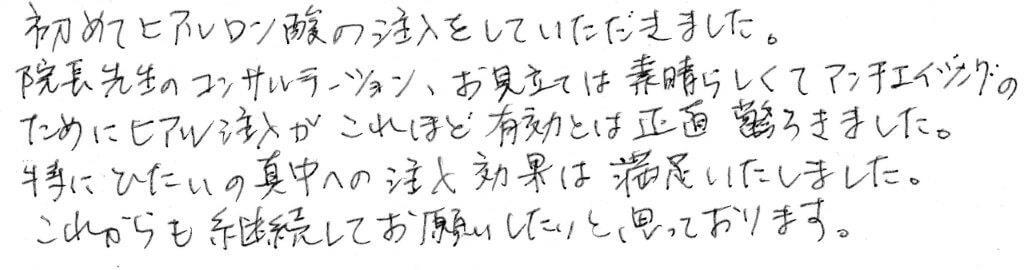 初めてヒアルロン酸の注入をしていただきました。
院長先生のコンサルテーション、お見立ては素晴らしくてアンチエイジングの
ためにヒアル注入がこれほど有効とは正直驚ろきました。
特にひたいの真中への注入効果は満足いたしました。
これからも継続してお願いしたいと思っております。